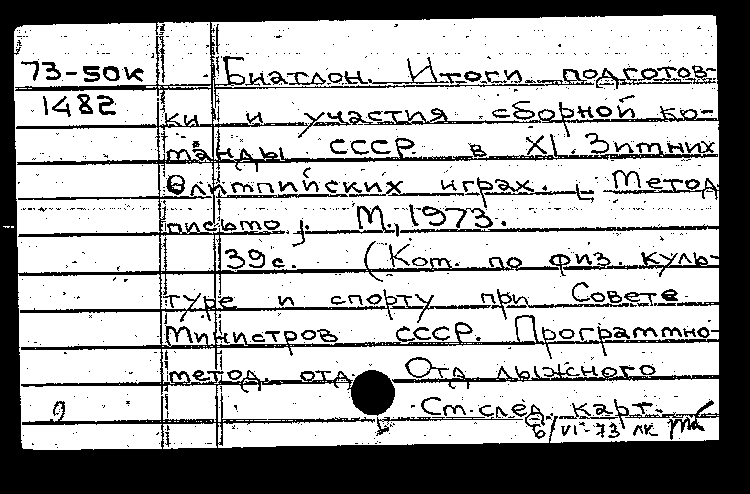 73-50к Биатлон. Итоги подготов-
1482
ки и участия сборной ко-
манды СССР в XI. Зимних
Олимпийских играх. [Метод.
письмо]. М., 1973.
39с. (Ком. по физ. куль-
туре и спорту при Совете
Министров СССР. Программно-
метод. отд. Отд лыжного
9 См. след. карт.
6/VI-73 лк